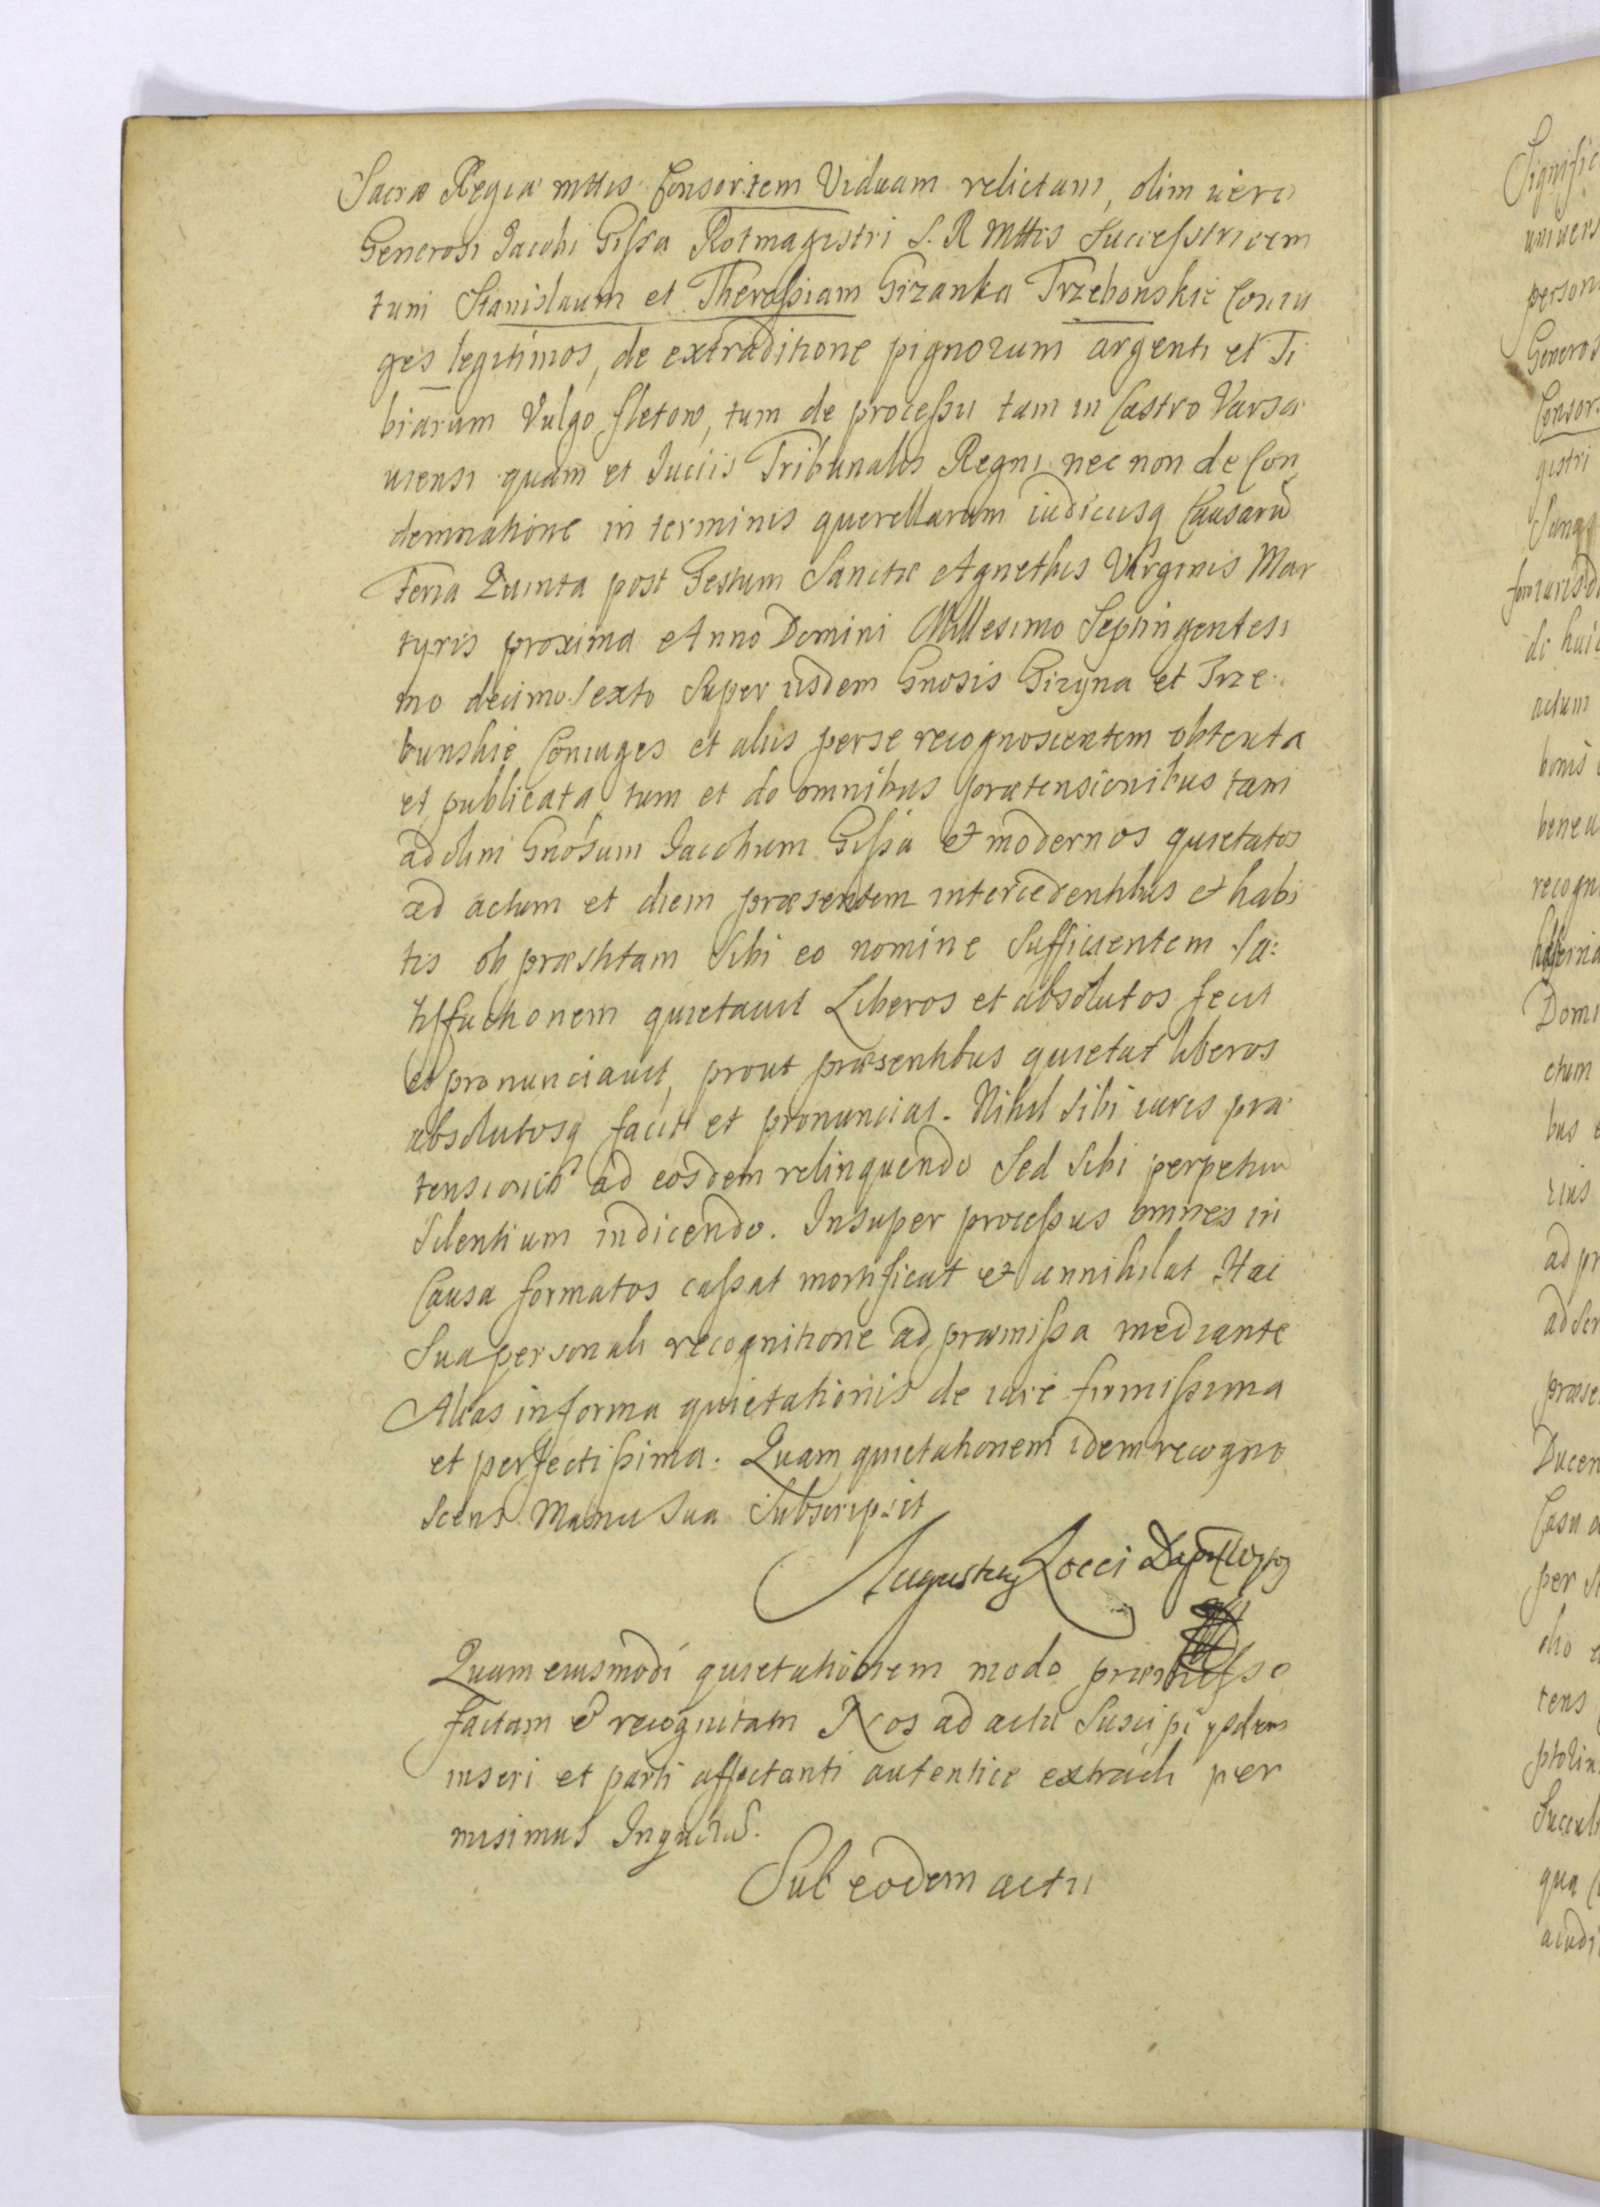 Sacræ Regiæ Mttis Consortem Viduam relictam, olim vero
Generosi Jacobi Gissa Rotmagistri S. R Mttis Successtricem
tum Stanislaum et Theressiam Gizanka Trzebonskie Coniu
ges legitimos, de extraditione pignorum argenti et Ti
biarum Vulgo fletow, tum de processu tam in Castro Varsa
uiensi quam et Iudiis Tribunalis Regni nec non de Con
demnatione in terminis querellarum iudicusq Causarū
Feria Quinta post Festum Sanctæ Agnethis Virginis Mar
tyris proxima Anno Domini Millesimo Septingentesi
mo decimo sexto Super iisdem Gnosis Gizyna et Trze
bunskie Coniuges et aliis per se recognoscentem obtenta
et publicata tum et de omnibus prætensionibus tam
ad olim Gnosum Jacobum Gissa et modernos quietatos
ad actum et diem præsentem intercedentibus et habi
tis ob præstitam Sibi eo nomine Sufficientem Sa:
tisfactionem quietauit Liberos et absolutos fecit
et pronunciauit, prout præsentibus quietat liberos
absolutosq facit et pronunciat. Nihil Sibi iuris præ
tensionis ad eosdem relinquendo Sed Sibi perpetuū
Silentium indicendo. Insuper processus omnes in
Causa formatos cassat mortificat et annihilat Hac
Sua personali recognitione ad præmissa mediante
Alias in forma quietationis de iure firmissima
et perfectissima. Quam quietationem idem recogno
scens Manu Sua Subscripsit
Augustus Locci
Quam eiusmodi quietationem modo præmisso
factam et recognitam Nos ad acta Suscipi ysdem
inseri et parti affectanti autentice extradi per
misimus
Sub eodem actu